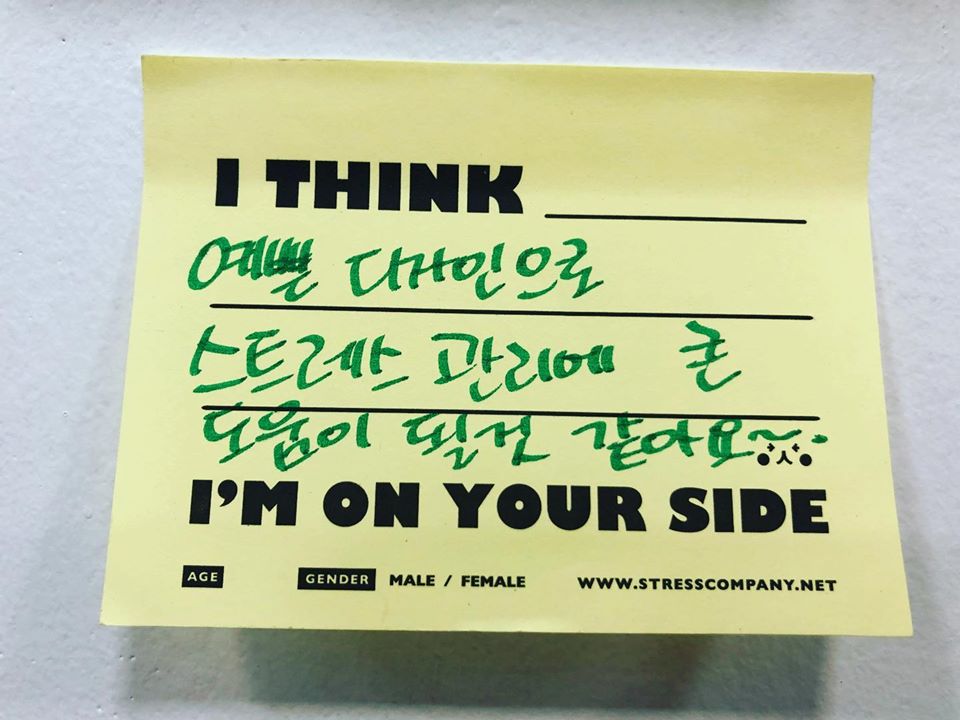 I THINK
예쁜 디자인으로
스트레스 관리에 큰
도움이 될건 같아요~
I'M ON YOUR SIDE
AGE GENDER MALE / FEMALE WWW.STRESSCOMPANY.NET